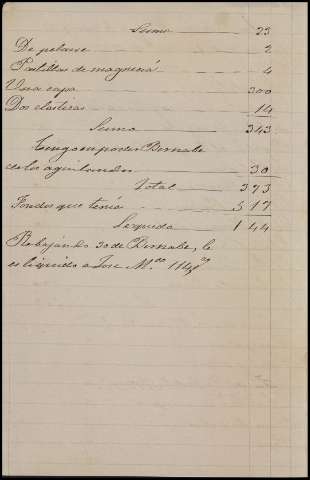 Suma 23
De pelarse 2
Pastillas de magnesia 4
Una capa 300
Dos elasticas 14
Suma 343
Tengo en poder Bernabe
de los aguinaldos 30
Total 373
Fondos que tenia 517
Se queda 144
Rebajando 30 de Bernabe, le
es liquido a Jose M. 114